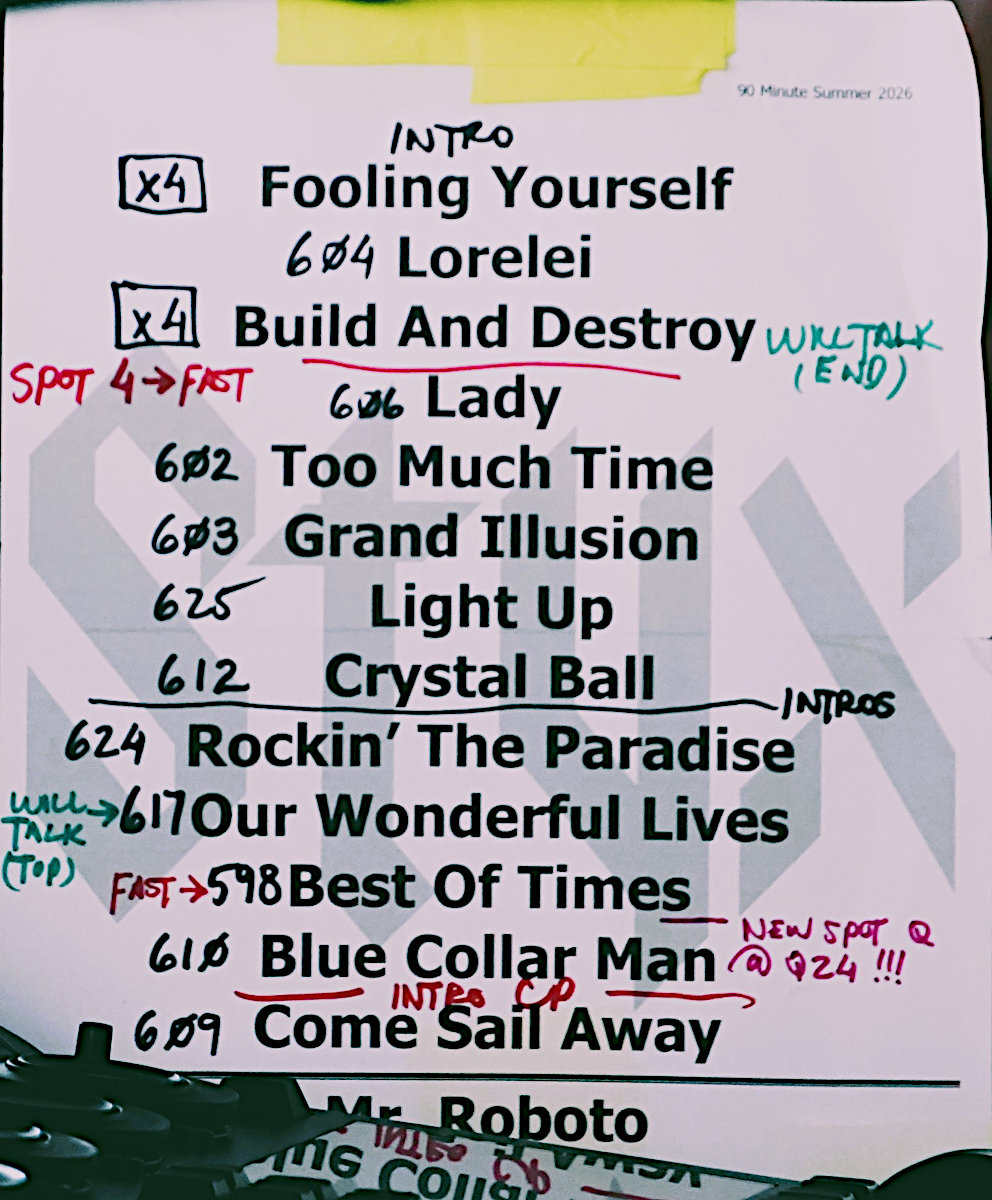 90 Minute Summer 2026
INTRO
x4 Fooling Yourself
6Ø4 Lorelei
x4 Build And Destroy WILL TALK
(END)
SPOT 4→FAST
6Ø6 Lady
6Ø2 Too Much Time
6Ø3 Grand Illusion
625 Light Up
612 Crystal Ball
INTROS
624 Rockin' The Paradise
WILL → 617 Our Wonderful Lives
TALK
(TOP)
FAST→598 Best Of Times
NEW SPOT Q
61Ø Blue Collar Man @ Q24 !!!
INTRO CP
6Ø9 Come Sail Away
Mr. Roboto
INTRO CP
Blue Collar
STYX